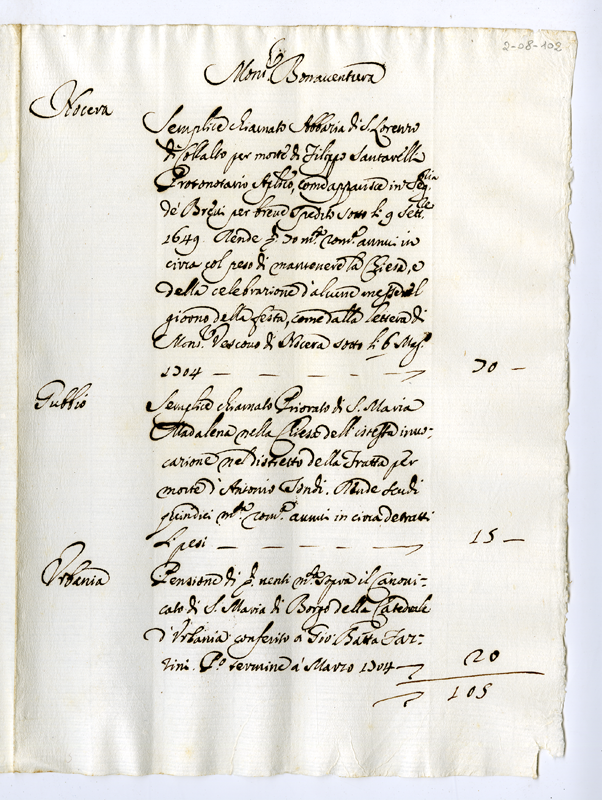 2-08-102
Mons.r Bonaventura
Nocera
Semplice chiamato Abbazia di S. Lorenzo
di Collalto per morte di Filippo Santarelli
Protonotario Aplico, come apparisce in Seg.ria
de' Brevi per breve spedito sotto li 9 Sett.
1649. Rende 70 m.ta rom.a annui in
circa col peso di mantenere la Chiesa, e
della celebrazione d'alcune messe nel
giorno della festa, come dalla lettera di
Mons.r Vescovo di Nocera sotto li 6 Mag.o
1704 — — — — 70 —
Gubbio
Semplice chiamato Priorato di S. Maria
Madalena nella Chiesa dell'istessa invo-
cazione nel distretto della Fratta per
morte d'Antonio Tondi. Rende scudi
quindici m.ta rom.a annui in circa detratti
li pesi — — — — 15 —
Urbania
Pensione di venti m.ta sopra il Canoni-
cato di S. Maria di Borgo della Catedrale
d'Urbania conferito a Gio: Batta Far-
rini. P.o termine a' Marzo 1704 — 20
105